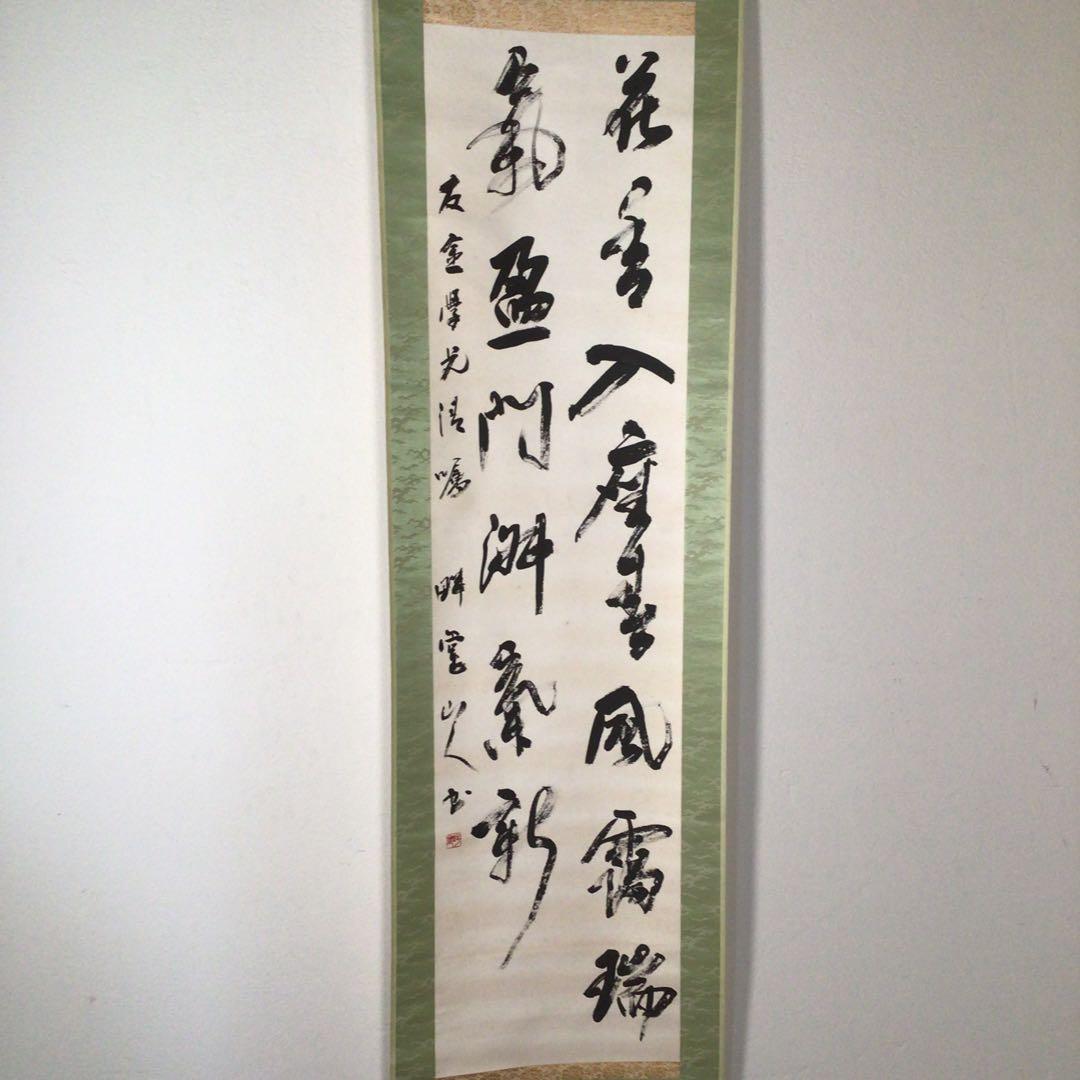 花香入座春風靄瑞
氣盈門淑氣新
友金學兄清囑 畊雲山人書